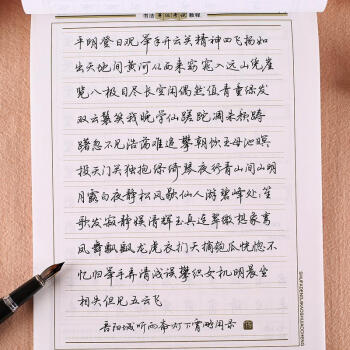 书法 教程
平明登日观举手开云关精神四飞扬如
出天地间黄河从西来窈窕入远山凭崖
览八极目尽长空闲偶然值青童绿发
双云鬟笑我晚学仙蹉跎凋朱颜踌
躇忽不见浩荡难追攀朝饮王母池暝
投天门关独抱绿绮琴夜行青山间山明
月露白夜静松风歇仙人游碧峰处处笙
歌发寂静娱清辉玉真连翠微想象鸾
凤舞飘飖龙虎衣扪天摘匏瓜恍惚不
忆归举手弄清浅误攀织女机明晨坐
相失但见五云飞
听雨斋灯下